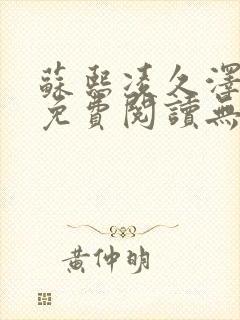 蘇熙凌久澤
免費閱讀無
黃仲明